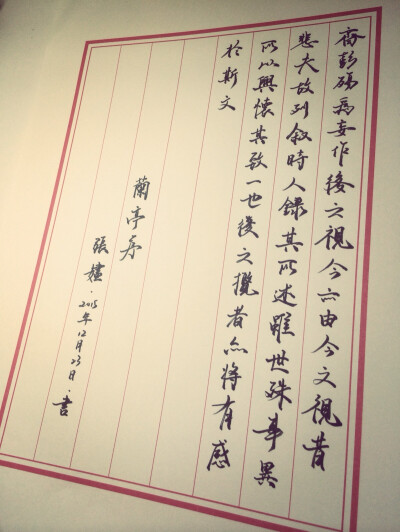 齊彭殤為妄作後之視今亦由今之視昔
悲夫故列叙時人錄其所述雖世殊事異
所以興懷其致一也後之攬者亦將有感
於斯文
蘭亭序
張 2015年12月23日·書